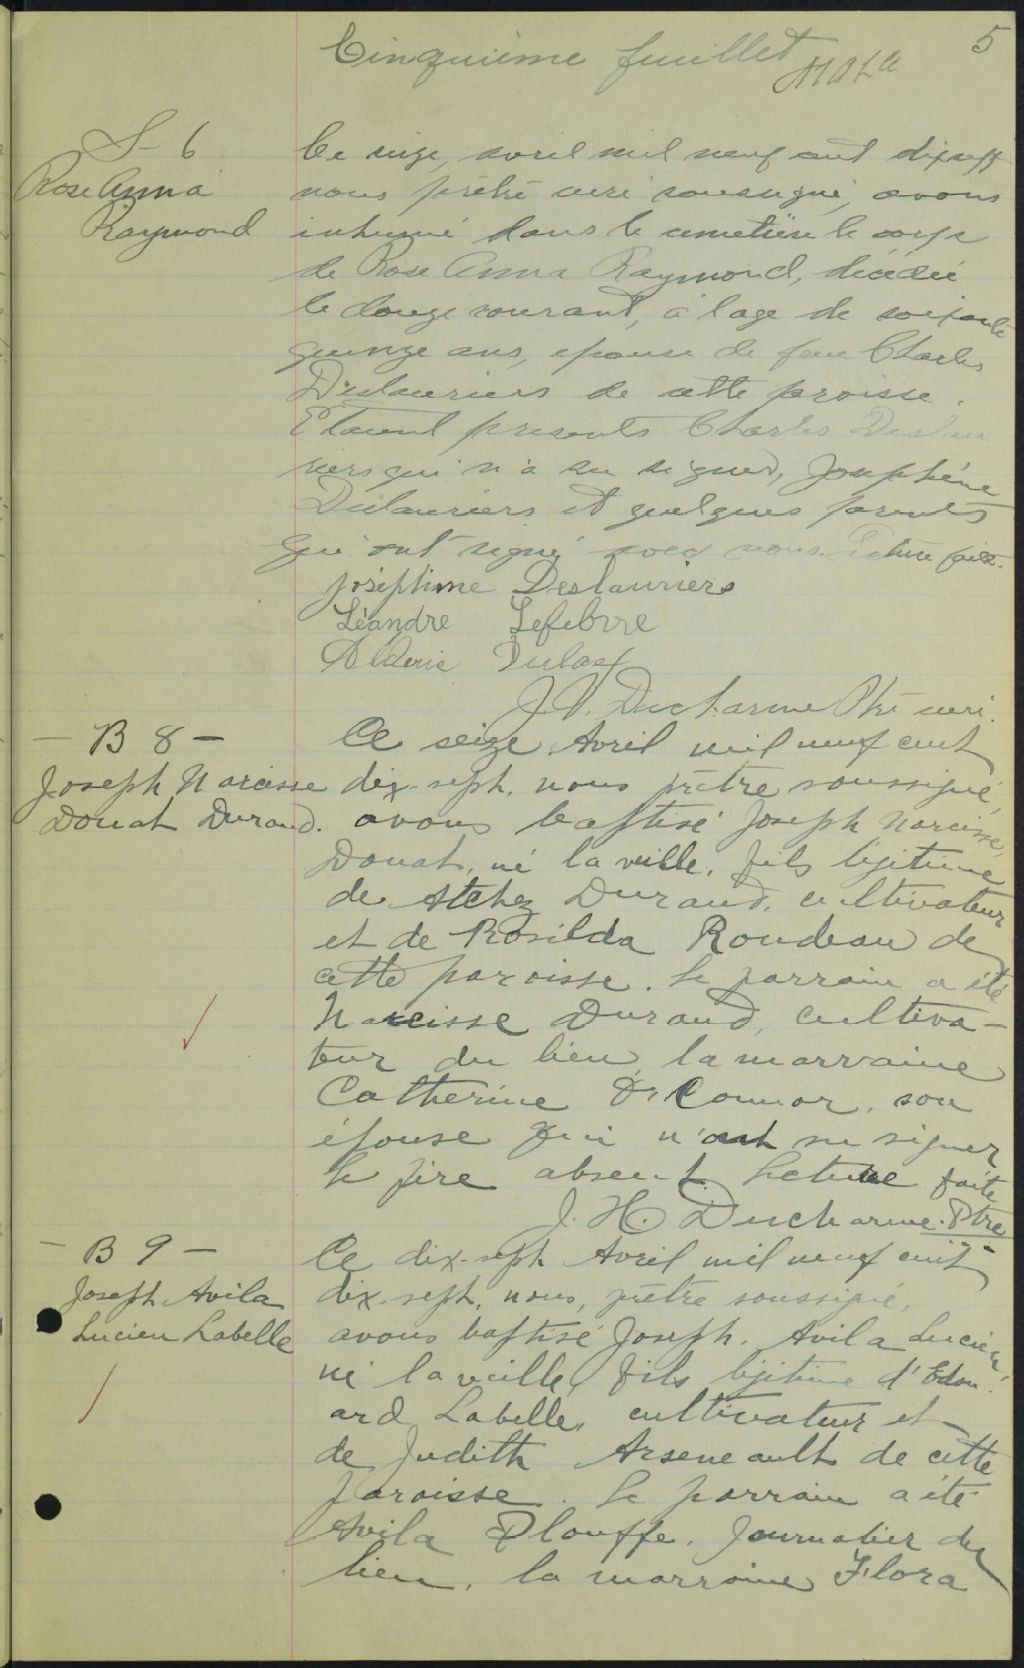 Cinquième feuillet
5
S-6
Rose Anna
Raymond
Ce seize, avril mil neuf cent dixsept
nous prêtre curé soussigné, avons
inhumé dans le cemetière le corps
de Rose Anna Raymond, décédée
le douze courant, à l'age de soixante
quinze ans, epouse de feu Charles
Deslauriers de cette paroisse.
Etaient presents Charles Deslau
riers qui n'a su signer, Josephine
Deslauriers et quelques parents
qui ont signé avec nous. Lecture faite.
Joséphine Deslauriers
Léandre Lefebvre
Alderic
Ducharme Ptre curé.
— B 8 —
Joseph Narcisse
Donat Durand.
Ce seize Avril mil neuf cent
dix-sept, nous prêtre soussigné,
avons baptisé Joseph Narcisse,
Donat, né la veille, fils légitime
de Durand, cultivateur
et de Rosilda Rondeau de
cette paroisse. Le parrain a été
Narcisse Durand, cultiva-
teur du lieu, la marraine
Catherine O'Connor, son
épouse qui n'ont su signer
le père absent. Lecture faite
J. H. Ducharme. Ptre
— B 9 —
Joseph Avila
Lucien Labelle
Ce dix-sept Avril mil neuf cent
dix-sept, nous, prêtre soussigné,
avons baptisé Joseph. Avila Lucien,
né la veille, fils légitime d'Edou-
ard Labelle, cultivateur et
de Judith Arseneault de cette
paroisse. Le parrain a été
Avila Plouffe. Journalier du
lieu, la marraine Flora